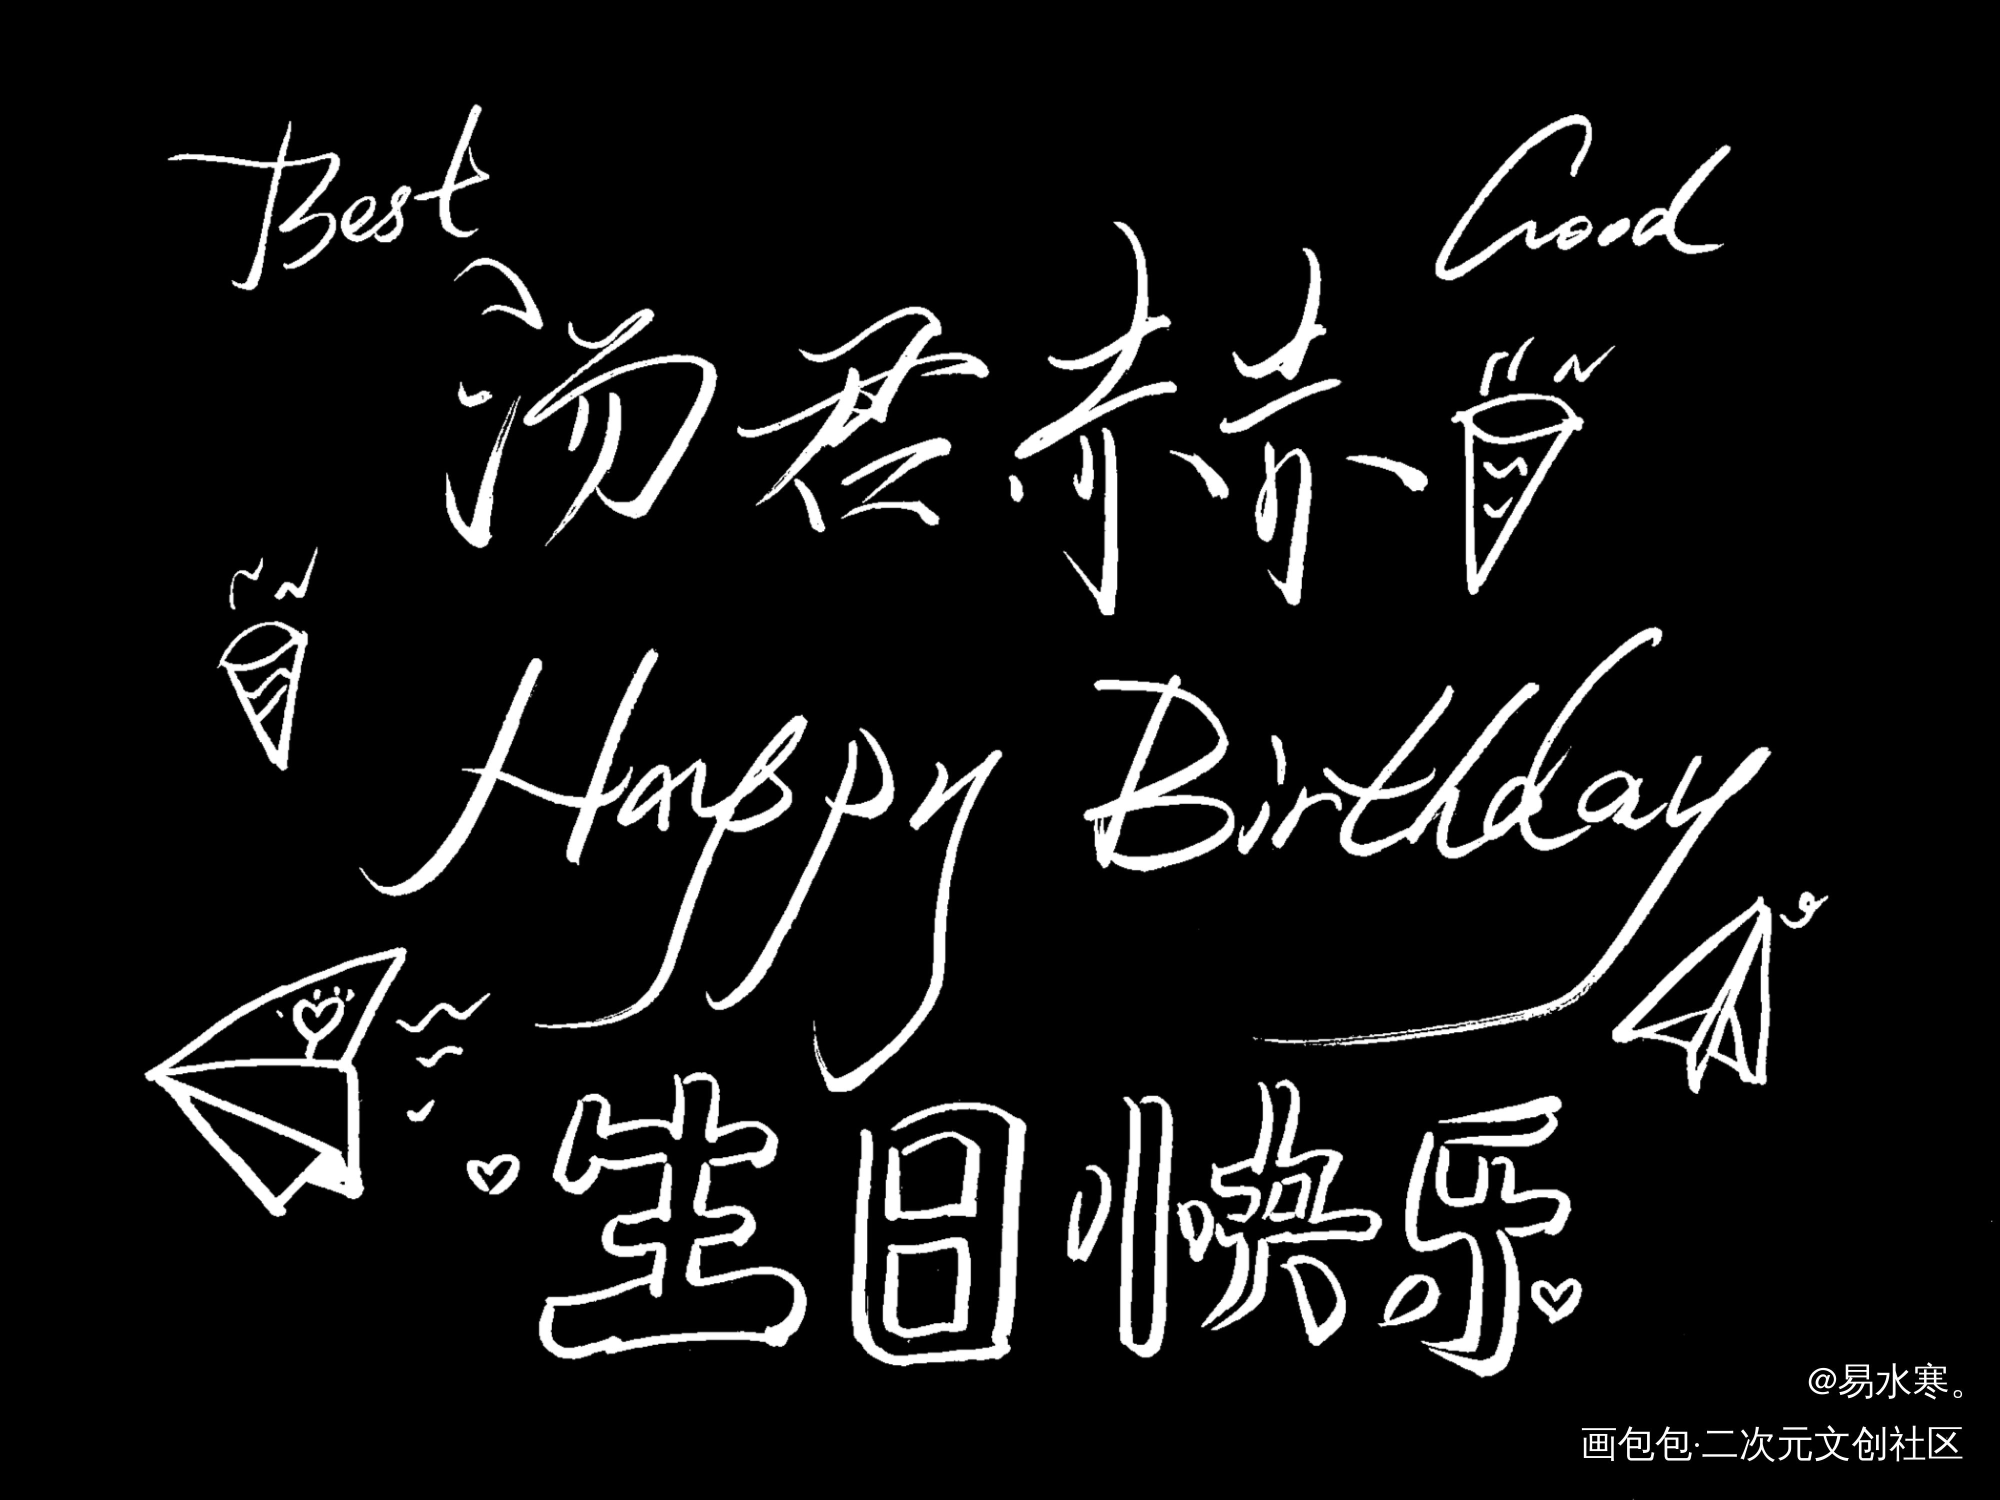 Best
Good
汤君赫
Happy Birthday
生日快乐
@易水寒。
画包包·二次元文创社区